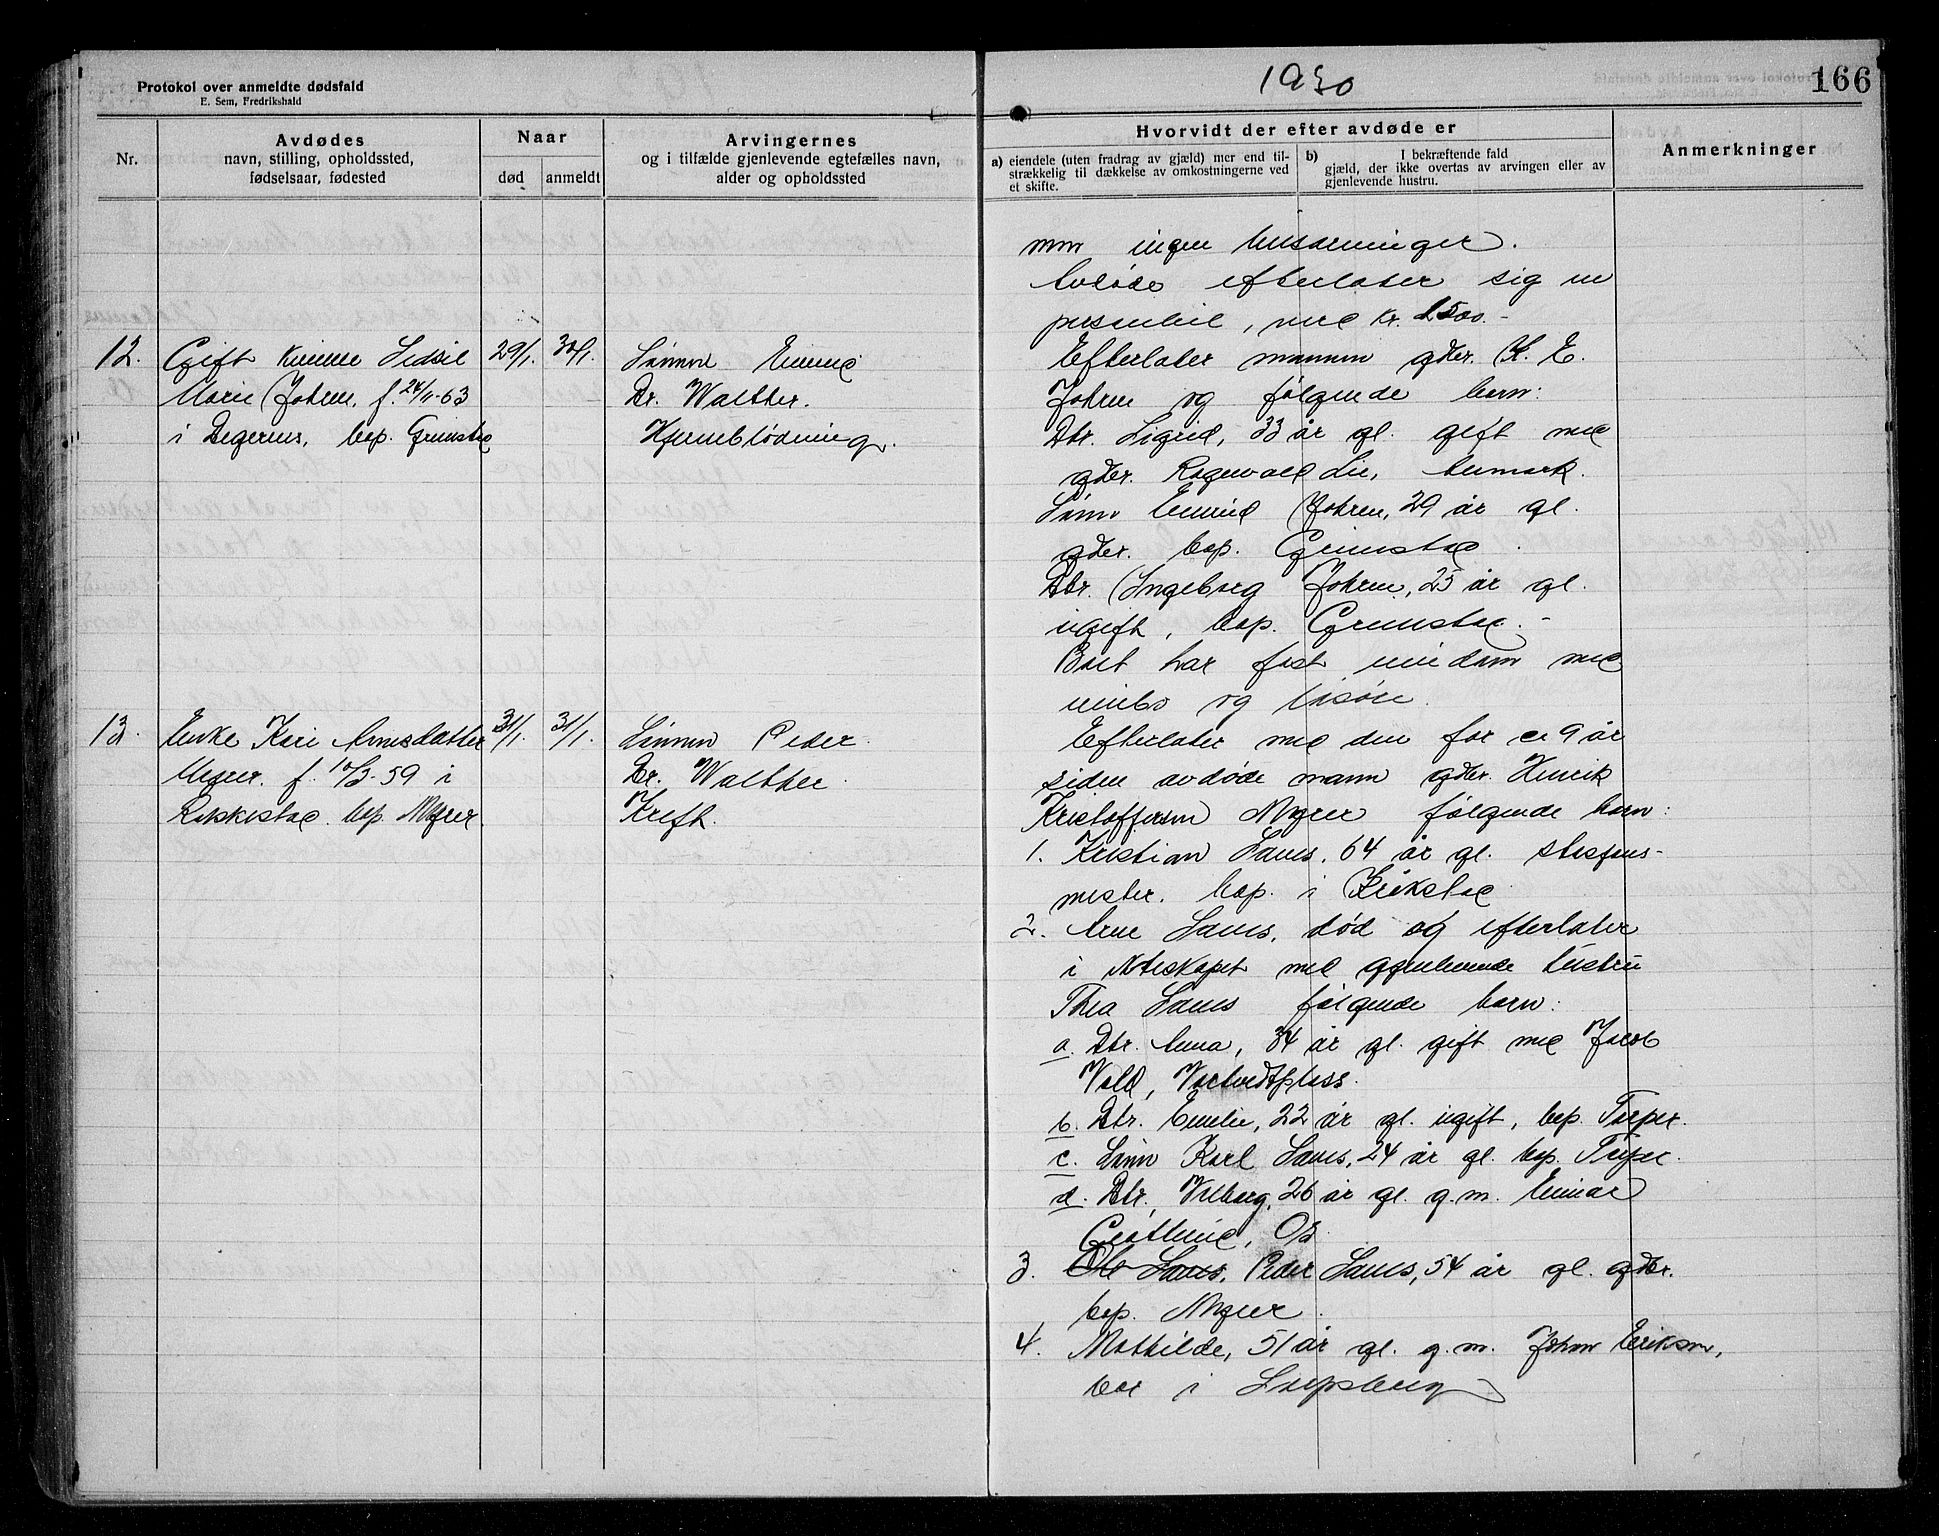 Protokol over anmeldte dødsfald
E. Sem, Fredrikshald
1930
166
Nr.
Avdødes
navn, stilling, opholdssted,
fødselsaar, fødested
Naar
død
anmeldt
Arvingernes
og i tilfælde gjenlevende egtefælles navn,
alder og opholdssted
Hvorvidt der efter avdøde er
a) eiendele (uten fradrag av gjæld) mer end til-
strækkelig til dækkelse av omkostningerne ved
et skifte.
b) I bekræftende fald
gjæld, der ikke overtas av arvingen eller av
gjenlevende hustru.
Anmerkninger
men ingen livsarvinger.
Avdøde efterlater sig en
pers, med kr. 1500.-
12.
Gift kvinne Sidsil
Marie Johren, f. 24/11-63
i Degernes, bop. Grimstad
29/1.
30/1.
Sønnen Eivind
Dr. Walther.
Hjerneblødning.
Efterlater mannen gdbr. K. E.
Johren og følgende barn:
Dtr. Sigrid, 33 år gl. gift med
gdbr. Ragnvald Lie, Aremark.
Sønn Eivind Johren, 29 år gl.
gdbr. bop. Grimstad.
Dtr. Ingeborg Johren, 25 år gl.
ugift, bop. Grimstad.-
Boet har fast eiendom med
innbo og løsøre.
13.
Enke Kari Arnesdatter
Myrer. f. 10/3-59 i
Rakkestad bop. Myrer.
31/1.
31/1.
Sønnen Peder.
Dr. Walther.
Kreft.
Efterlater med den for ca 9 år
siden avdøde mann gdbr. Henrik
Kristoffersen Myrer følgende barn:
1. Kristian Saues, 64 år gl. stasjons-
mester. bop. i Kråkstad
2. Arne Saues, død og efterlater
i ekteskapet med gjenlevende hustru
Thea Saues følgende barn:
a. Dtr. Anna, 34 år gl. gift med Jacob
Vold,
b. Dtr. Emelie, 22 år gl. ugift, bop. Torper.
c. Sønn Karl Saues, 24 år gl. bop. Torper.
d. Dtr. Valborg, 26 år gl. g.m. Einar
3. Ole Saues, Peder Saues, 54 år gl. gdbr.
bop. Myrer.
4. Mathilde, 51 år gl. g.m. Johan Eriksen,
bor i Sarpsborg